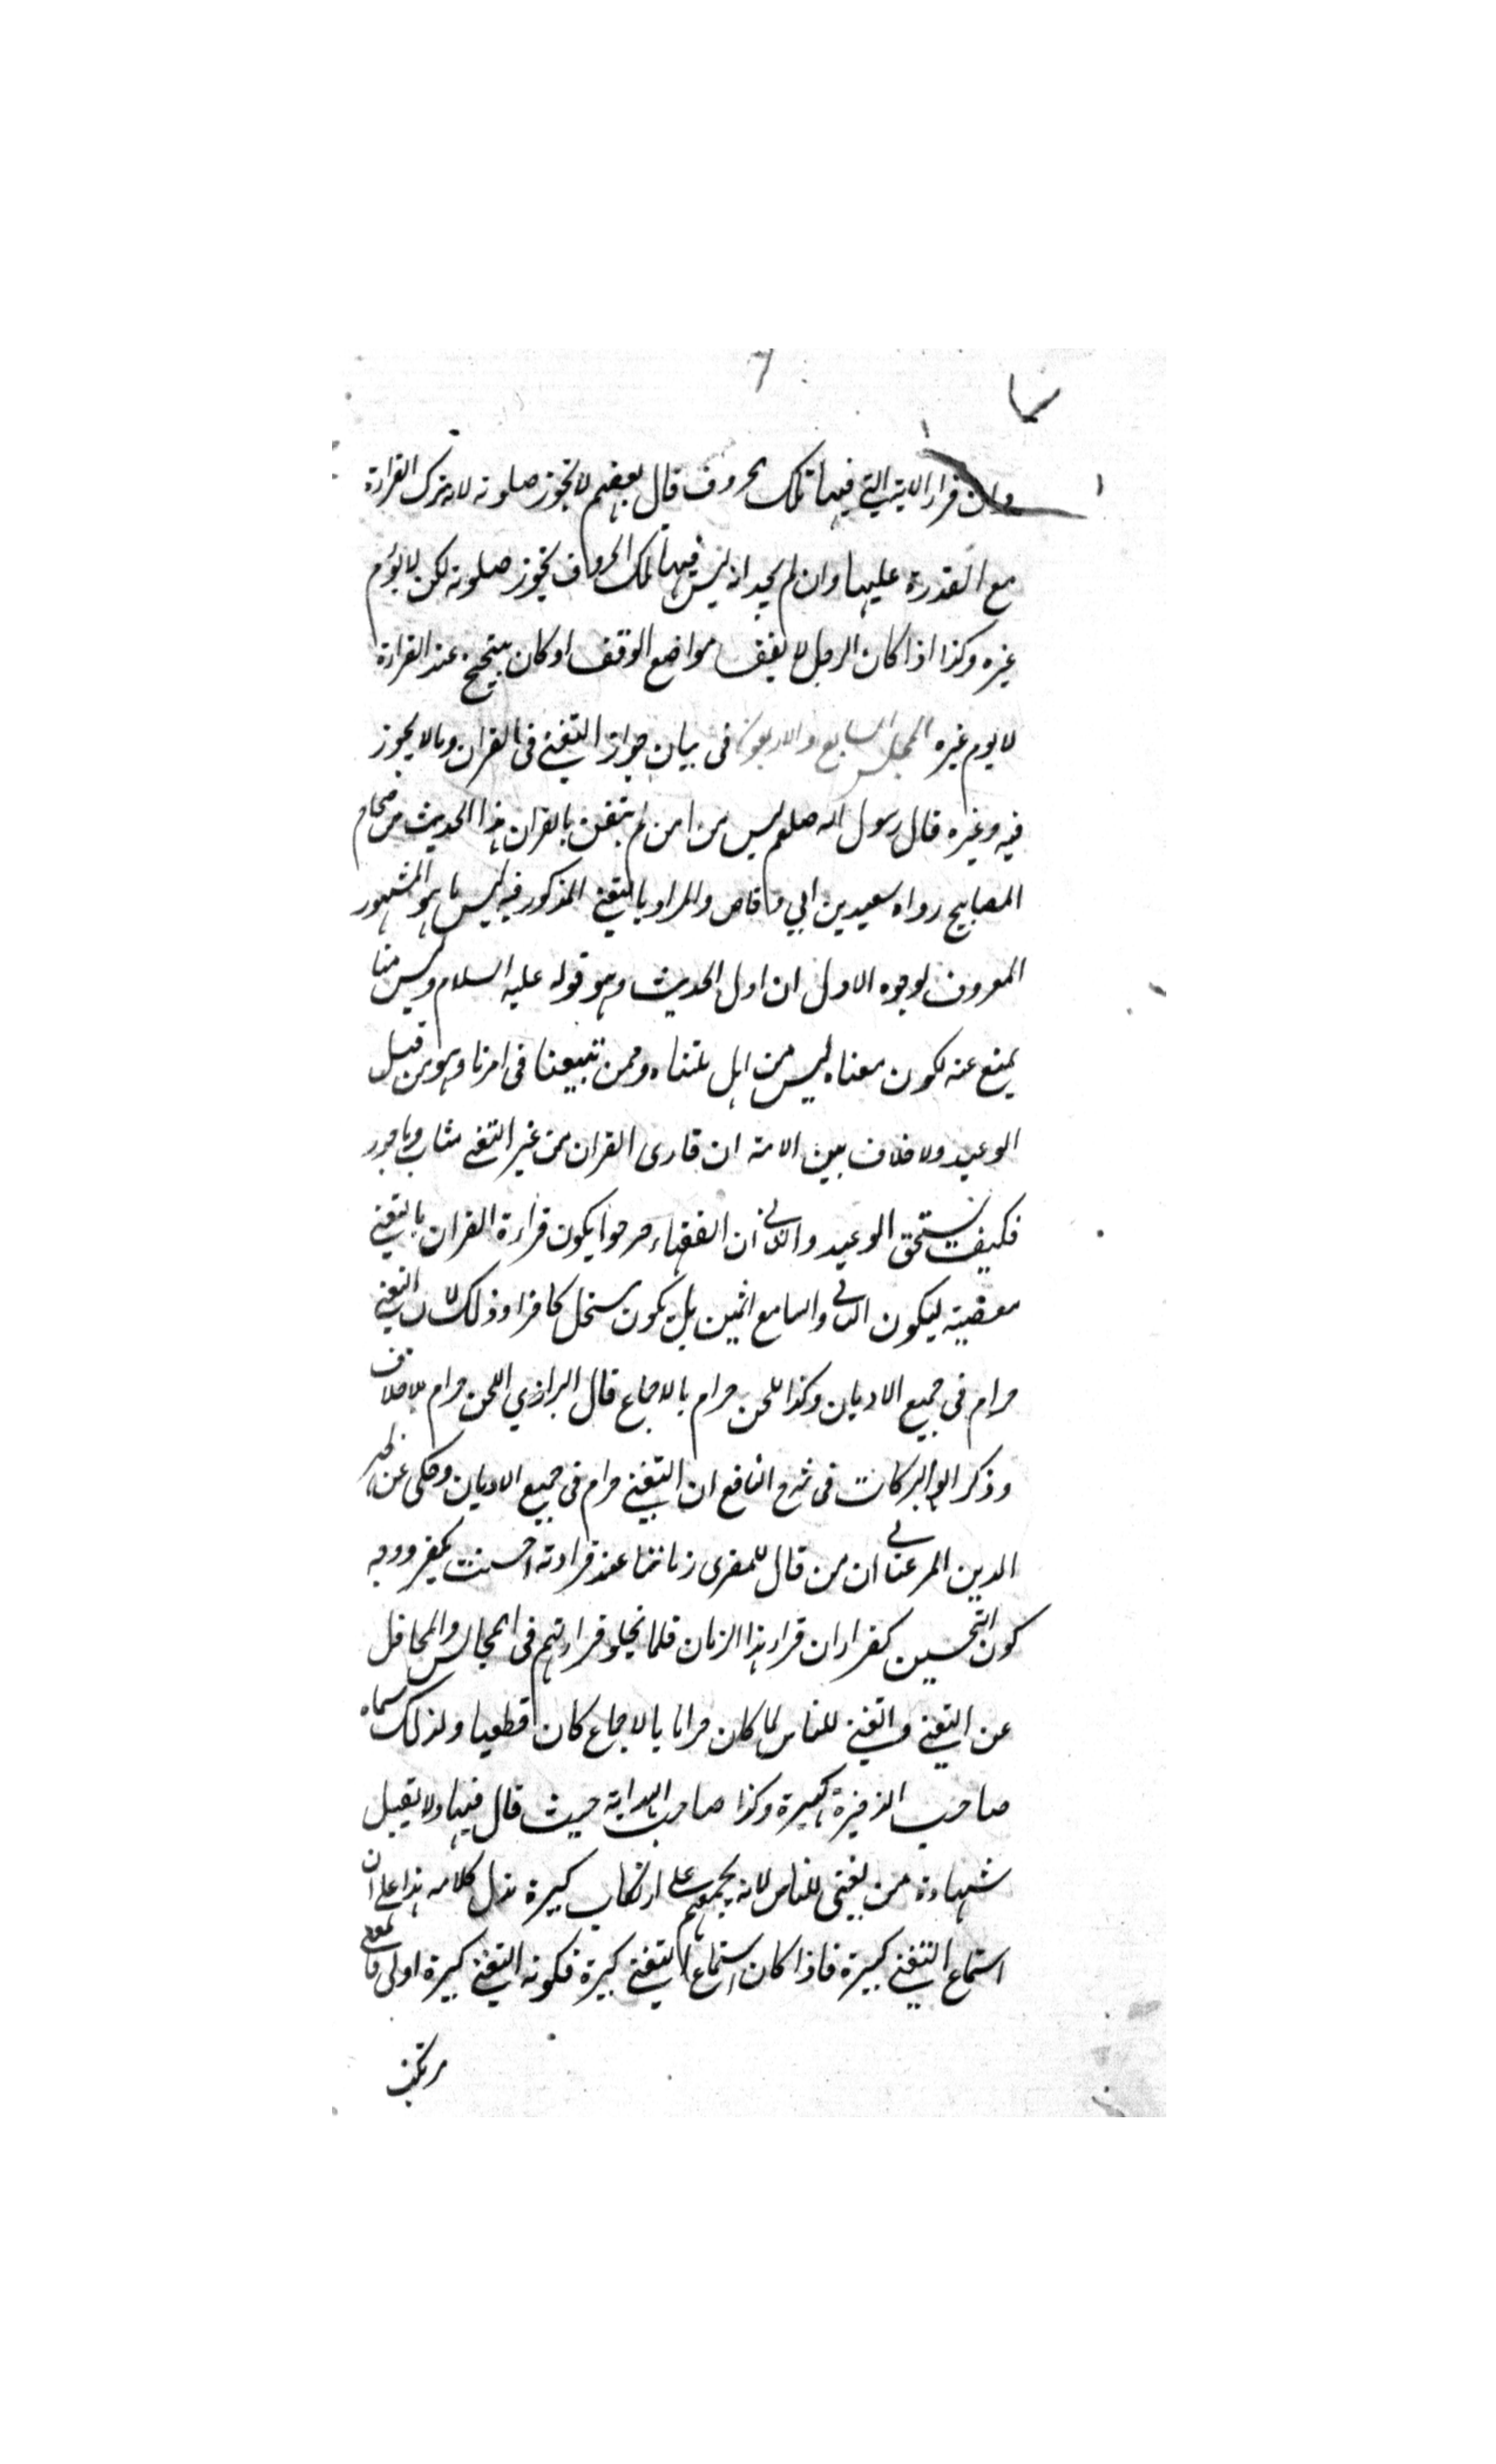 وان قرا الاية التي فيها تلك حروف قال بعضهم لا تجوز صلوته لانه ترك القراءة
مع القدرة عليها وان لم يجد اية ليس فيها تلك الحروف يجوز صلوته لكن لا يؤم
غيره وكذا اذا كان الرجل لا يقف مواضع الوقف او كان يتنحنح عند القراءة
لا يوم غيره المجلس السابع والاربعون في بيان جواز التغني في القران وما لا يجوز
فيه وغيره قال رسول الله صلعم ليس منا من لم يتغن بالقران هذا الحديث من صحاح
المصابيح رواه سعيد بن ابي وقاص والمراد بالتغني المذكور فيه ليس ما هو المشهور
المعروف لوجوه الاول ان اول الحديث وهو قوله عليه السلام وليس منا
يمنع عنه لكون معناه ليس من اهل سنتنا وممن تتبعنا في امرنا وهو من قبيل
الوعيد ولا خلاف بين الامة ان قارى القران من غير التغني مثاب وماجور
فكيف يستحق الوعيد والثاني ان الفقهاء صرحوا بكون قراءة القران بالتغني
معصية ليكون التالي والسامع اثمين بل يكون مستحل كافرا وذلك لان التغني
حرام في جميع الاديان وكذا اللحن حرام بالاجماع قال البزازي اللحن حرام بلا خلاف
وذكر ابو البركات في شرح النافع ان التغني حرام في جميع الاديان وحكى عن ظهير
الدين المرغيناني ان من قال للمقرى زماننا عند قراءته احسنت يكفر ووجه
كون التحسين كفرا ان قراء هذا الزمان قلما تخلو قراءتهم في المجالس والمحافل
عن التغني والتغني للناس لما كان حراما بالاجماع كان قطعيا ولذلك سماه
صاحب الذخيرة كبيرة وكذا صاحب الهداية حيث قال فيها ولا يقبل
شهادة من يغني للناس لانه يجمعهم على ارتكاب كبيرة فدل كلامه هذا على ان
استماع التغني كبيرة فاذا كان استماع التغني كبيرة فكونه التغني كبيرة اولى
مرتكب